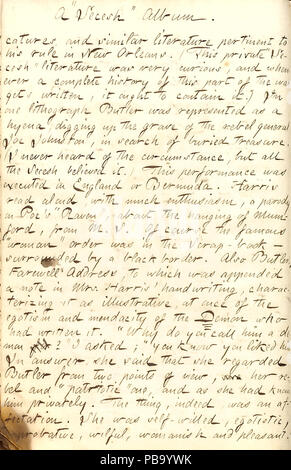 A "Secesh" Album.
catures and similar literature pertinent to
his rule in New Orleans. (This private Se-
cesh "literature was very curious" and when-
ever a complete history of this part of the war
gets written it ought to contain it.) In
one lithograph Butler was represented as a
hyena, digging up the grave of the rebel general
Joe Johnston, in search of buried treasure.
I never heard of the circumstance, but all
the Secesh believed it. This performance was
executed in England or Bermuda. Harris
read aloud, with much enthusiasm, a parody
on Poe's "Raven," about the hanging of Mum-
ford, from M.S. Of course the famous
"woman" order was in the scrap-book -
surrounded by a black border. Also Butler's
Farewell Address, to which was appended
a note in Mrs Harris' handwriting, charac-
terizing it as illustrative at once of the
egotism and mendacity of the Demon who
had written it. "Why do you call him a de-
mon?" I asked; "you know you liked him"
In answer she said that she regarded
Butler from two points of view, her re-
bel and "patriotic" one, and as she had known
him privately. The thing, indeed was an af-
fectation. She was self-willed, egotistic,
approbative, wilful, womanish and pleasant.
alamy
PB9YWK